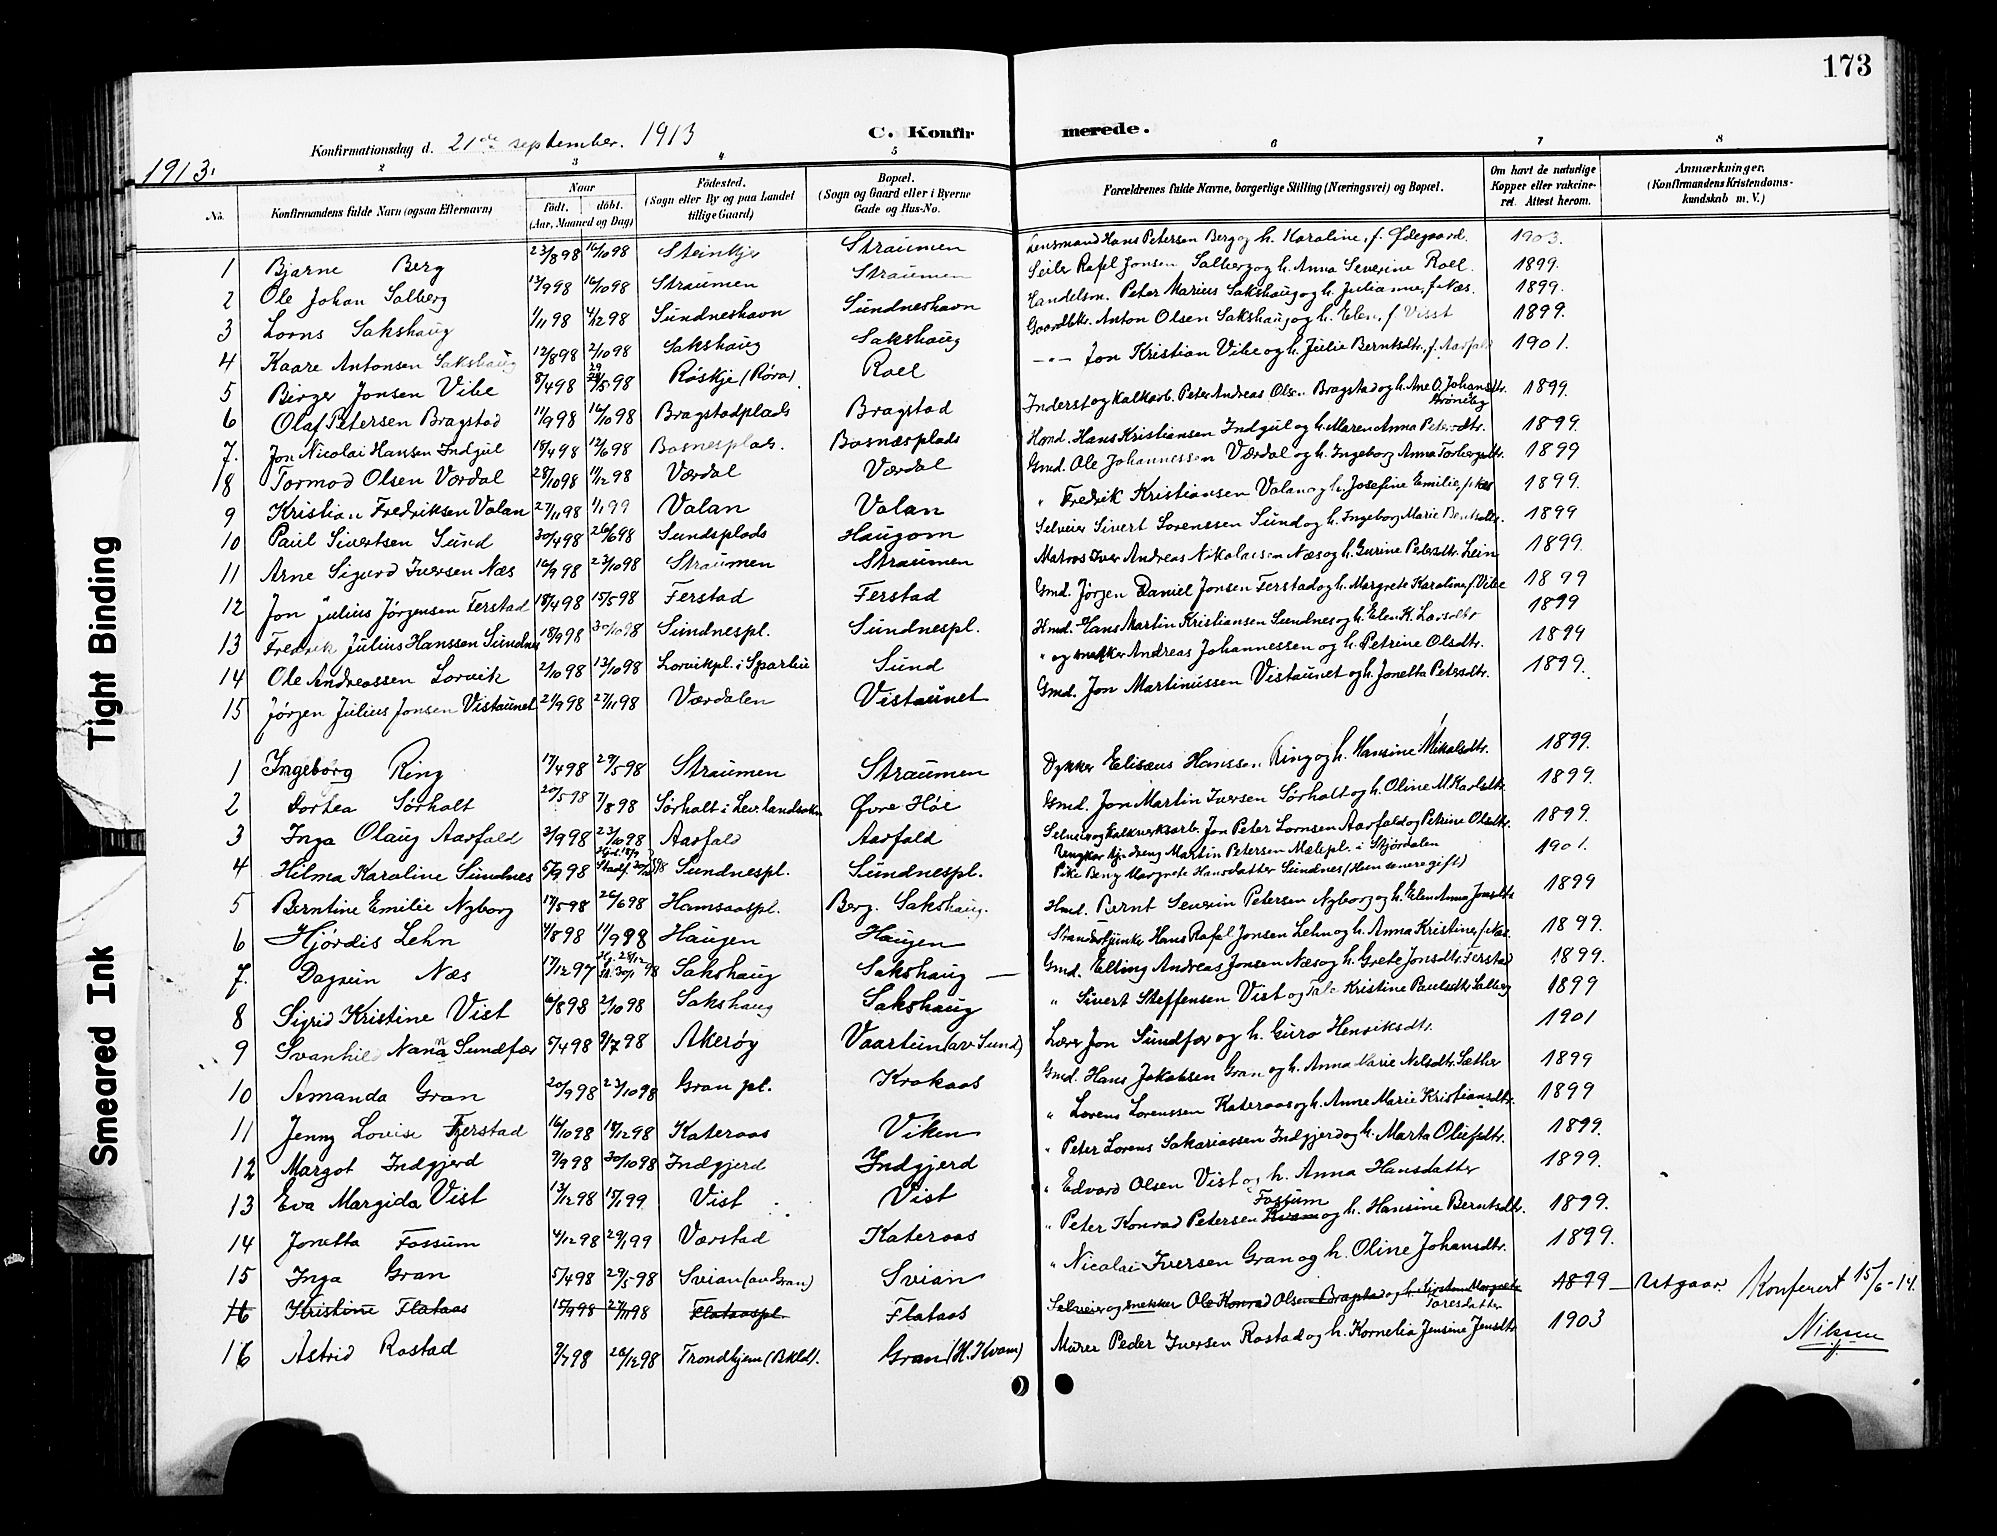 173
C. Konfirmerede.
Konfirmationsdag d. 21de september. 1913
1913.
2 3 4 5 6 7 8
No. Konfirmandens fulde Navn (ogsaa Efternavn) Naar født. døbt. (Aar, Maaned og Dag) Fødested. (Sogn eller By og paa Landet tillige Gaard) Bopæl. (Sogn og Gaard eller i Byerne Gade og Hus-No. Forældrenes fulde Navne, borgerlige Stilling (Næringsvei) og Bopæl. Om havt de naturlige Kopper eller vakcineret. Attest herom. Anmærkninger. (Konfirmandens Kristendomskundskab m. V.)
1 Bjarne Berg 23/8 98 16/10 98 Steinkjer Straumen Lensmand Hans Petersen Berg og h. Karoline, f. Ødegaard. 1903.
2 Ole Johan Salberg 13/9 98 16/10 98 Straumen Straumen Seiler Rafel Jonsen Salberg og h. Anna Severine Roel. 1899.
3 Lorns Sakshaug 1/11 98 4/12 98 Sundneshavn Sundneshavn Handelsm. Peter Marius Sakshaug og h. Julianne, f. Næs. 1899.
4 Kaare Antonsen Sakshaug 12/8 98 2/10 98 Sakshaug Sakshaug Gaardbk. Anton Olsen Sakshaug og h. Elen, f. Visst 1899.
5 Birger Jonsen Vibe 8/4 98 29/5 98 Røskje (Røra) Roel —"— Jon Kristian Vibe og h. Julie Berntsdtr, f. Aarfald 1901.
6 Olaf Petersen Bragstad 11/9 98 16/10 98 Bragstadplads Bragstad Inderst og Kalkarb. Peter Andreas Olsen Bragstad og h. Ane O. Johansdtr. Grønesby 1899.
7. Jon Nicolai Hansen Indgul 18/4 98 12/6 98 Basnesplads. Basnæsplads Hmd. Hans Kristiansen Indgul og h. Maren Anna Petersdtr. 1899.
8 Tormod Olsen Værdal 28/10 98 11/12 98 Værdal Værdal Gmd. Ole Johannessen Værdal og h. Ingeborg Anna Torbergsdtr. 1899
9 Kristian Fredriksen Valan 27/11 98 1/1 99 Valan Valan " Fredrik Kristiansen Valan og h. Josefine Emilie, f. Næs 1899.
10 Paul Sivertsen Sund 30/4 98 26/6 98 Sundsplads Haugom Selveier Sivert Lorenssen Sund og h. Ingeborg Marie Berntsdtr. 1899
11 Arne Sigurd Iversen Næs 16/9 98 23/10 98 Straumen Straumen Matros Iver Andreas Nikolaisen Næs og h. Gurine Petersdtr. Lein 1899.
12 Jon Julius Jørgensen Ferstad 18/4 98 15/5 98 Ferstad Ferstad Gmd. Jørgen Daniel Jonsen Ferstad og h. Margrete Karoline, f. Vibe 1899
13 Fredrik Julius Hanssen Sundnes 18/9 98 30/10 98 Sundnespl. Sundnespl. Hmd. Hans Martin Kristiansen Sundnes og h. Elen K. Larsdtr 1899
14 Ole Andreassen Lorvik 2/10 98 13/10 98 Lorvikpl. i Sparbu Sund " og snekker Andreas Johannessen og h. Petrine Olsdtr. 1899
15 Jørgen Julius Jonsen Vistaunet 21/9 98 27/11 98 Værdalen Vistaunet Gmd. Jon Martinussen Vistaunet og h. Jonetta Petersdtr. 1899.
1 Ingeborg Ring 17/4 98 29/5 98 Straumen Straumen Dykker Elisæus Hanssen Ring og h. Hansine Mikalsdtr. 1899.
2 Dortea Sørholt 20/5 98 7/8 98 Sørholt i Lev. landsokn Øvre Høie Gmd. Jon Martin Iversen Sørholt og h. Oline M. Karlsdtr. 1899.
3 Inga Olaug Aarfald 3/9 98 23/10 98 Aarfald Aarfald Selveier og Kalkverksarb. Jon Peter Lornsen Aarfald og Petrine Olsdtr. 1899.
4 Hilma Karoline Sundnes 5/9 98 Hjd. 18/9 Stadf. 20/11 98 Sundnespl. Sundnespl. Ungkar tj.dreng Martin Petersen Mælepl. i Stjørdalen Pike Berg Margrete Hansdatter Sundnes (Hun senere gift) 1901.
5 Berntine Emilie Nyborg 17/5 98 26/6 98 Hamsaaspl. Berg. Sakshaug. Hmd. Bernt Severin Petersen Nyborg og h. Elen Anna Jonsdtr 1899
6 Hjørdis Lehn 4/8 98 11/9 98 Haugen Haugen Hans Rafel Jonsen Lehn og h. Anna Kristine, f. Næs. 1899.
7. Dagrun Næs 17/12 97 Hj. 28/12 St. 30/1 98 Sakshaug Sakshaug — Gmd. Elling Andreas Jonsen Næs og h. Grete Jonsdtr Ferstad 1899.
8 Sigrid Kristine Vist 16/8 98 2/10 98 Sakshaug Sakshaug " Sivert Steffensen Vist og Kristine Paulsdtr Salberg 1899
9 Svanhild Nanna Sundfær 5/4 98 9/7 98 Akerøy Vaartun (av Sund) Lærer Jon Sundfær og h. Guro Henriksdtr. 1901
10 Amanda Gran 20/9 98 23/10 98 Gran pl. Krokaas Gmd. Hans Jakobsen Gran og h. Anna Marie Nelsdtr. Sæther 1899
11 Jenny Lovise Fjerstad 16/10 98 18/12 98 Kateraas Viken " Lorens Lorenssen Kateraas og h. Anne Marie Kristiansdtr. 1899
12 Margot Indgjerd 9/9 98 30/10 98 Indgjerd Indgjerd " Peter Lorens Sakariassen Indgjerd og h. Marta Olufsdtr. 1899.
13 Eva Margida Vist 13/12 98 15/1 99 Vist Vist " Edvard Olsen Vist og h. Anna Hansdatter 1899.
14 Jonetta Fossum 4/12 98 29/1 99 Værstad Kateraas " Peter Konrad Petersen Kvam Fossum og h. Hansine Berntsdtr. 1899.
15 Inga Gran 5/4 98 29/5 98 Svian (av Gran) Svian " Nicolai Iversen Gran og h. Oline Johansdtr. 1899.
16 Kristine Flataas 15/9 98 27/11 98 Flataaspl. Flataas Selveier og snekker Ole Konrad Olsen og h. Kirsten Margrete Toresdatter 1899 — Utgaar. Konferert 15/6-14. Nilssen
16 Astrid Rostad 9/7 98 26/12 98 Trondhjem (Bkld). Gran (H. Kvam) Murer Peder Iversen Rostad og h. Kornelia Jensine Jensdtr 1903
Tight Binding
Smeared Ink